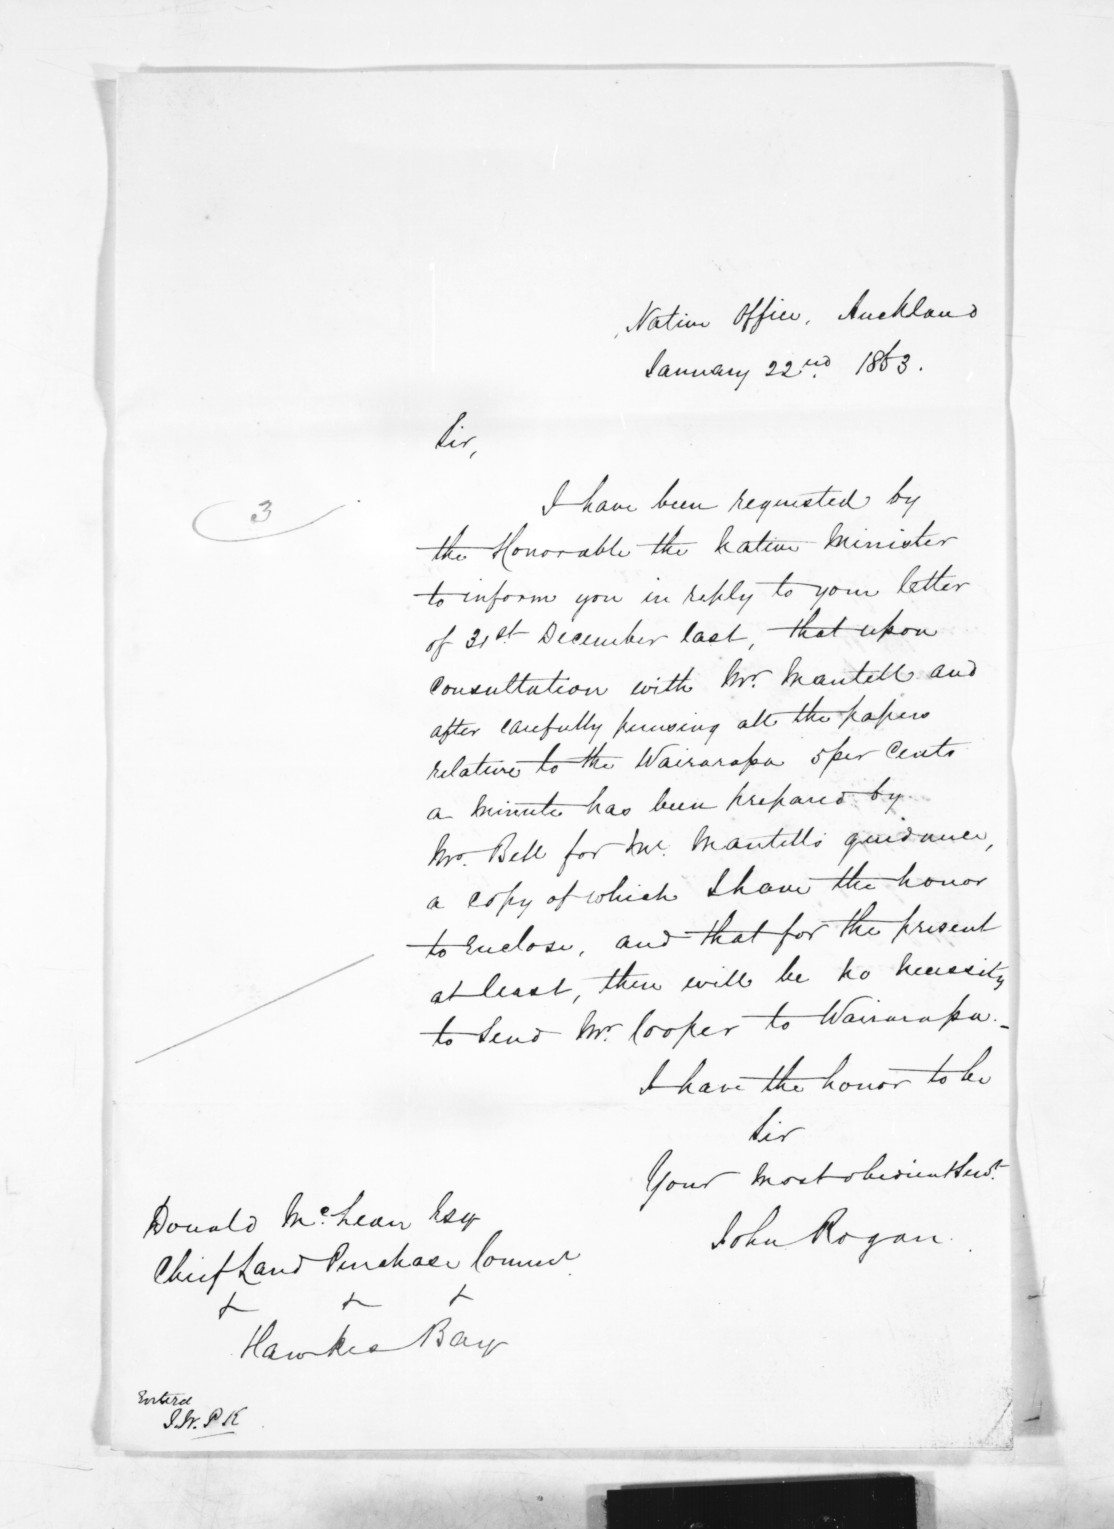 Native Office, Auckland
January 22nd. 1863.
Sir,
3
I have been requested by
the Honorable the Native Minister
to inform you in reply to your letter
of 31st December last, that upon
consultation with Mr. Mantell and
after carefully perusing all the papers
relative to the Wairarapa 5 per Cents
a Minute has been prepared by
Mr. Bell for Mr. Mantell's guidance,
a copy of which I have the honor
to enclose, and that for the present
at least, there will be no necessity
to send Mr. Cooper to Wairarapa.-
I have the honor to be
Sir
Your most obedient Servt.
John Rogan.
Donald McLean Esq
Chief Land Purchase Commr.
& & &
Hawkes Bay
Entered